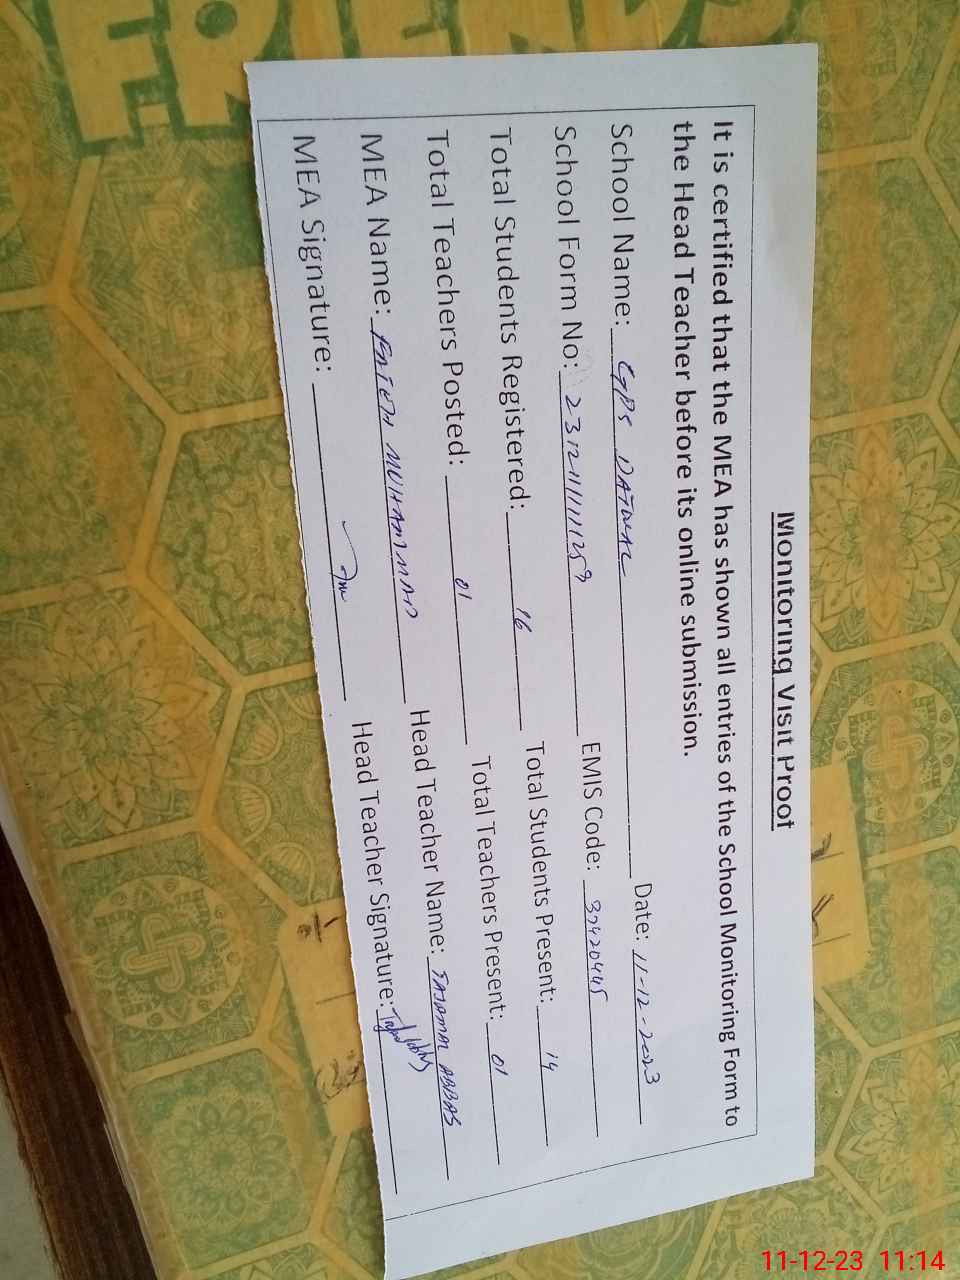 FRIENDS
Monitoring Visit Proof
It is certified that the MEA has shown all entries of the School Monitoring Form to
the Head Teacher before its online submission.
School Name: GPS DATWAL Date: 11-12-2023
School Form No: EMIS Code: 37420445
Total Students Registered: 16 Total Students Present: 14
Total Teachers Posted: 01 Total Teachers Present: 01
MEA Name: FATEH MUHAMMAD Head Teacher Name: TAJAMAL ABBAS
MEA Signature: Head Teacher Signature:
11-12-23 11:14